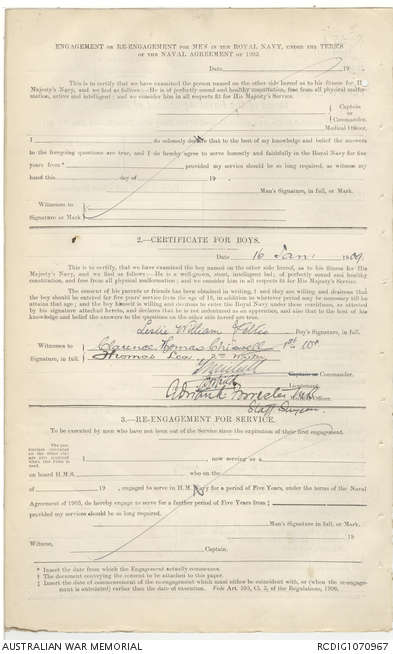 ENGAGEMENT OR RE-ENGAGEMENT FOR MEN IN THE ROYAL NAVY, UNDER THE TERMS
OF THE NAVAL AGREEMENT OF 1903.
Date, 19
This is to certify that we have examined the person named on the other side hereof as to his fitness for His
Majesty's Navy, and we find as follows:—He is of perfectly sound and healthy constitution, free from all physical malfor-
mation, active and intelligent; and we consider him in all respects fit for His Majesty's Service.
Captain
or
Commander.
Medical Officer.
I do solemnly declare that to the best of my knowledge and belief the answers
to the foregoing questions are true, and I do hereby agree to serve honestly and faithfully in the Royal Navy for five
years from * , provided my service should be so long required, as witness my
hand this day of 19 .
Man's Signature, in full, or Mark.
Witnesses to
Signature or Mark
2.—CERTIFICATE FOR BOYS.
Date 16 Jan: 1909
This is to certify, that we have examined the boy named on the other side hereof, as to his fitness for His
Majesty's Navy, and we find as follows:—He is a well-grown, stout, intelligent lad; of perfectly sound and healthy
constitution, and free from all physical malformation; and we consider him in all respects fit for His Majesty's Service.
The consent of his parents or friends has been obtained in writing, † and they are willing and desirous that
the boy should be entered for five years' service from the age of 18, in addition to whatever period may be necessary till he
attain that age; and the boy himself is willing and desirous to enter the Royal Navy under these conditions, as attested
by his signature attached hereto, and declares that he is not indentured as an apprentice, and also that to the best of his
knowledge and belief the answers to the questions on the other side hereof are true.
Leslie William Boy's Signature, in full.
Witnesses to Clarence Thomas
Signature, in full. Thomas
Captain or Commander.
Officer.
Staff Surgeon
3.—RE-ENGAGEMENT FOR SERVICE.
To be executed by men who have not been out of the Service since the expiration of their first engagement.
I , now serving as a
on board H.M.S. who on the
of 19 , engaged to serve in H.M. Navy for a period of Five Years, under the terms of the Naval
Agreement of 1903, do hereby engage to serve for a further period of Five Years from ‡
provided my services should be so long required.
Man's Signature in full, or Mark.
19
Witness,
Captain.
* Insert the date from which the Engagement actually commences.
† The document conveying the consent to be attached to this paper.
‡ Insert the date of commencement of the re-engagement which must either be coincident with, or (when the re-engage-
ment is antedated) earlier than the date of execution.
AUSTRALIAN WAR MEMORIAL
RCDIG1070967